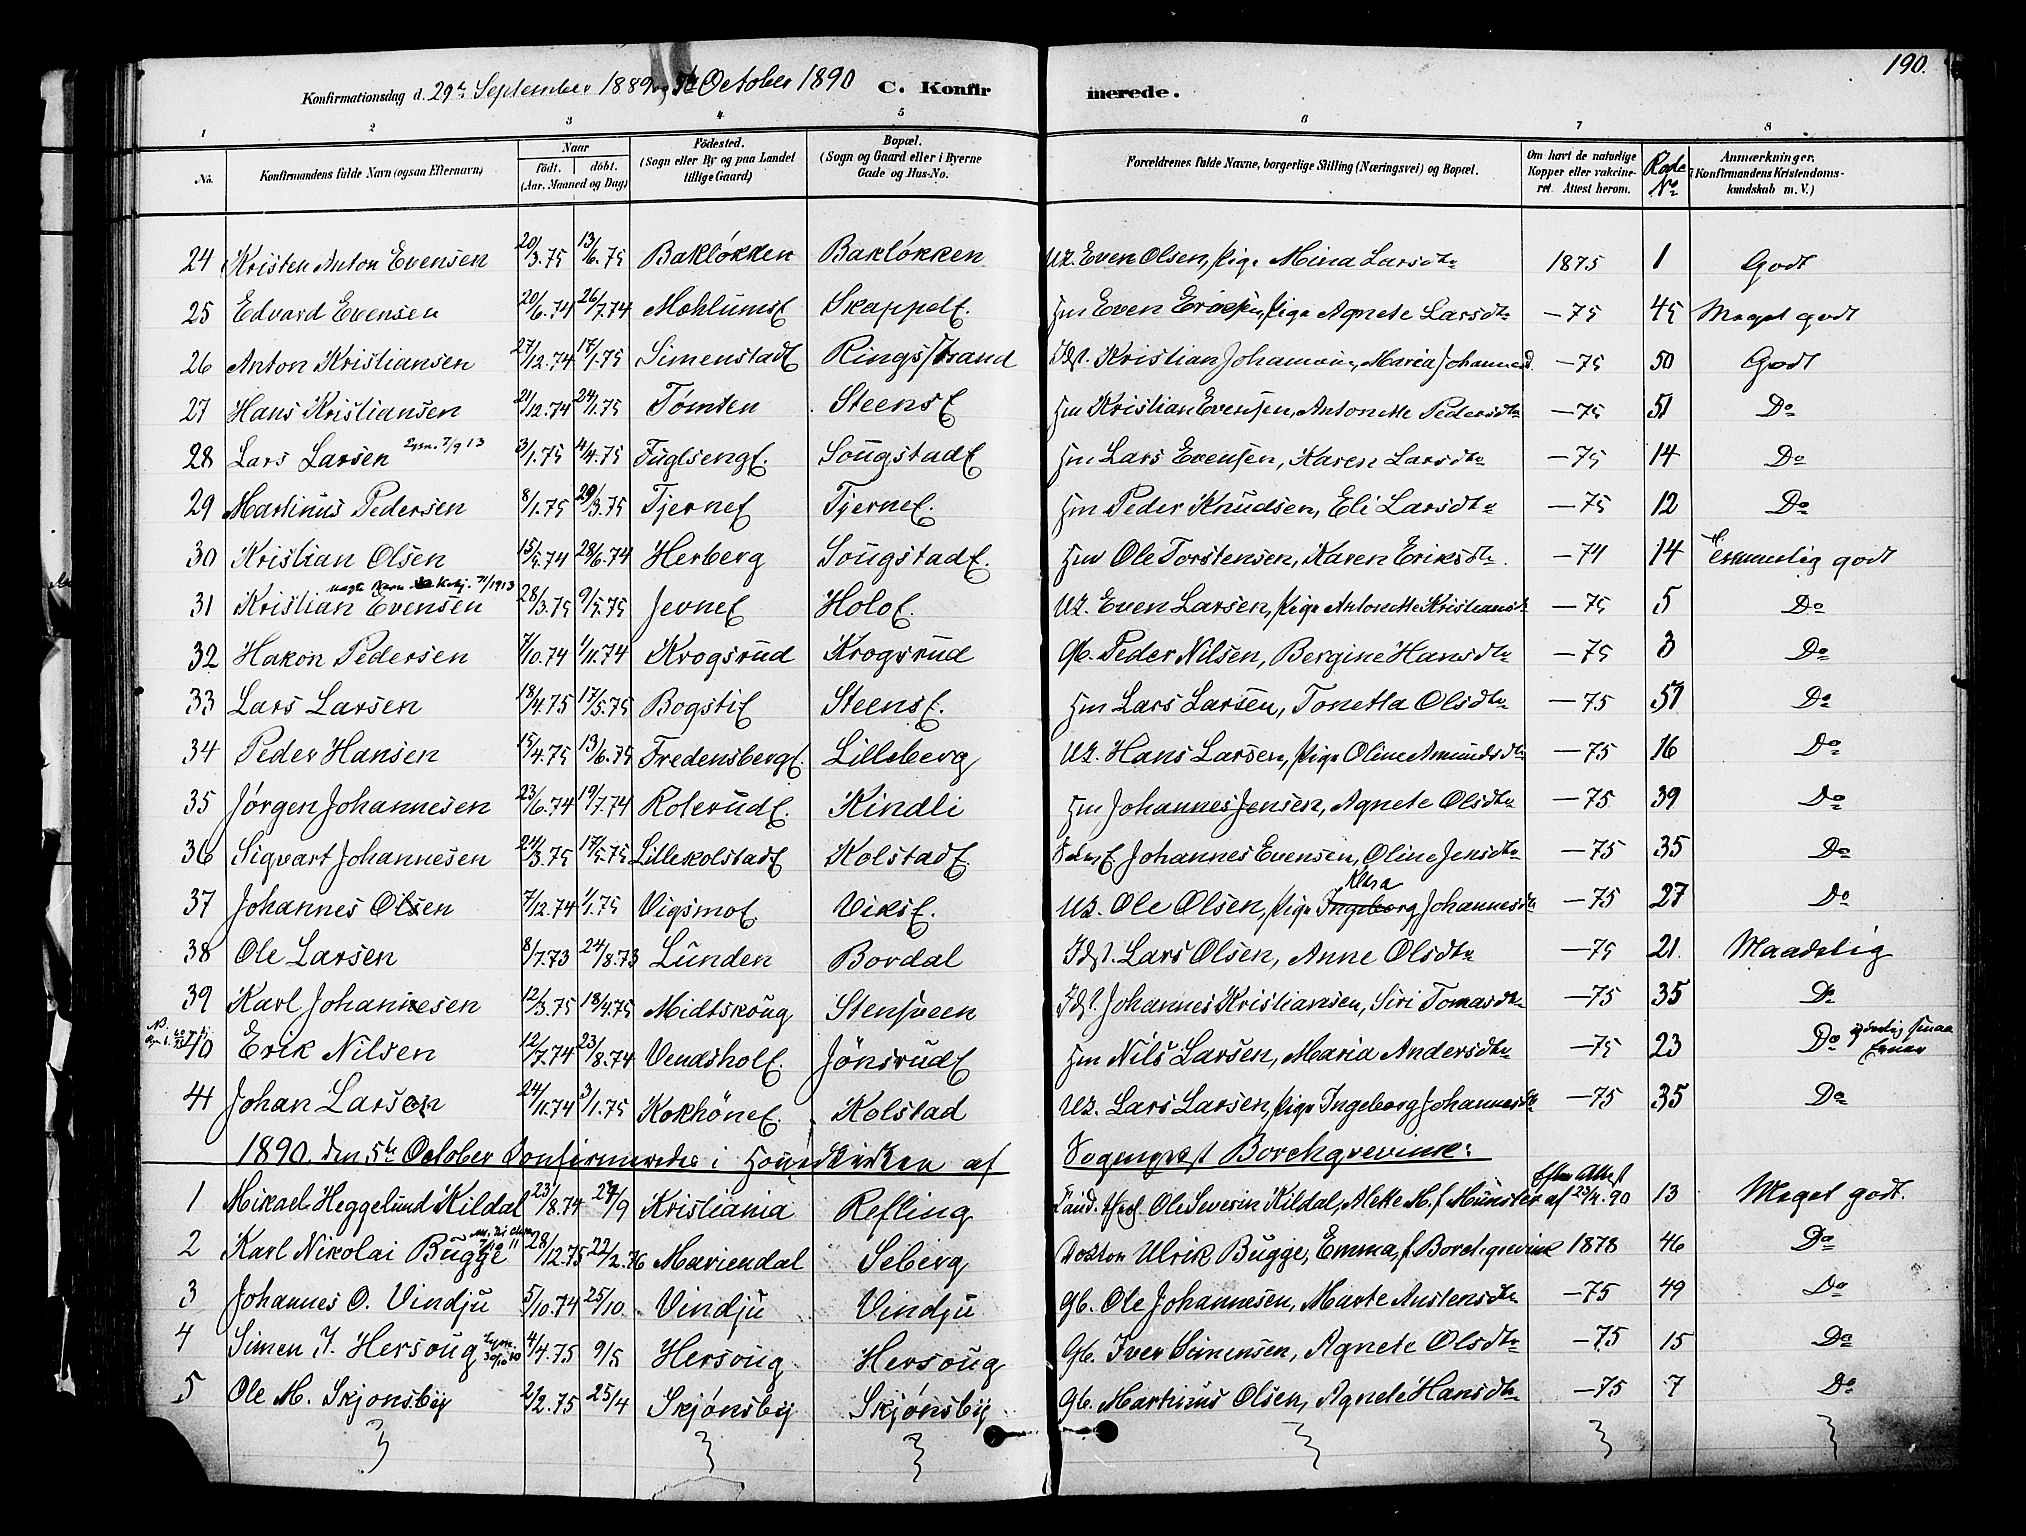 190.
Konfirmationsdag d. 29de September 1889, 5te October 1890 C. Konfirmerede.
1 2 3 4 5 6 7 8
No. Konfirmandens fulde Navn (ogsaa Efternavn) Naar Födt. döbt. (Aar. Maaned og Dag) Födested. (Sogn eller By og paa Landet tillige Gaard) Bopæl. (Sogn og Gaard eller i Byerne Gade og Hus-No. Forældrenes fulde Navne, borgerlige Stilling (Næringsvei) og Bopæl. Om havt de naturlige Kopper eller vakcineret. Attest herom. Rode No Anmærkninger. (Konfirmandens Kristendomskundskab m. V.)
24 Kristen Anton Evensen 20/3.75 13/6.75 Bakløkken Bakløkken Uz. Even Olsen, Pige Mina Larsdtr 1875 1 Godt
25 Edvard Evensen 20/6.74 26/7.74 MohlumsE Skappel E. Hm Even Eriksen, Pige Agnete Larsdtr —75 45 Meget godt
26 Anton Kristiansen 27/12.74 17/1.75 SimenstadE Ringsstrand Idst. Kristian Johannesen, Maria Johannesd. —75 50 Godt
27 Hans Kristiansen 21/12.74 24/1.75 Tømten SteensE Hm Kristian Evensen, Antonette Pedersdtr —75 51 Do
28 Lars Larsen 7/9 13 3/1.75 4/4.75 FuglsengE. SougstadE Hm Lars Evensen, Karen Larsdtr —75 14 Do
29 Martinus Pedersen 8/1.75 29/3.75 TjerneE TjerneE. Hm Peder Knudsen, Eli Larsdtr —75 12 Do
30 Kristian Olsen 15/5.74 28/6.74 Herberg SougstadE. Hm Ole Torstensen, Karen Eriksdtr —74 14 Temmelig godt
31 Kristian Evensen 28/3.75 9/5.75 JevneE HoloE. Uz. Even Larsen, Pige Antonette Kristiansdtr —75 5 Do
32 Hakon Pedersen 7/10.74 1/11.74 Krogsrud Krogsrud Gb. Peder Nilsen, Bergine Hansdtr —75 3 Do
33 Lars Larsen 18/4.75 17/5.75 BogstiE SteensE. Hm Lars Larsen, Tonetta Olsdtr —75 51 Do
34 Peder Hansen 15/4.75 13/6.75 FredensbergE. Lilleberg Uz. Hans Larsen, Pige Oline Amundsdtr —75 16 Do
35 Jørgen Johannesen 23/6.74 19/7.74 RoterudE. Kindli Hm Johannes Jensen, Agnete Olsdtr —75 39 Do
36 Sigvart Johannesen 24/3.75 17/5.75 LillekolstadE KolstadE. Johannes Evensen, Oline Jensdtr —75 35 Do
37 Johannes Olsen 7/12.74 1/1.75 VigsmoE ViksE. Uz. Ole Olsen, Pige Ingeborg Johannesdtr —75 27 Do
38 Ole Larsen 8/7.73 24/8.73 Lunden Bordal Idst. Lars Olsen, Anne Olsdtr —75 21 Maadelig
39 Karl Johannesen 12/3.75 18/4.75 Midtskoug Stensveen Idst. Johannes Kristiansen, Siri Tomasdtr —75 35 Do
40 Erik Nilsen 12/7.74 23/8.74 VendsholE. JønsrudE Hm Nils Larsen, Maria Andersdtr —75 23 Do
41 Johan Larsen 24/11.74 3/1.75 KokhøneE Kolstad Uz. Lars Larsen, Pige Ingeborg Johannesdtr —75 35 Do
1890 den 5te October Confirmeredes i Hovedkirken af Sognepræst Borchgrevink:
1 Mikael Heggelund Kildal 23/8.74 27/9 Kristiania Refling Ole Severin Kildal, Alette M. f. Münster Efter Attest af 23/4.90 13 Meget godt.
2 Karl Nikolai Bugge 28/12.75 22/2.76 Mariendal Seberg Doktor Ulrik Bugge, Emma f. Borchgrevink 1878 46 Do
3 Johannes O. Vindju 5/10.74 25/10 Vindju Vindju Gb. Ole Johannesen, Marte Austensdtr —75 49 Do
4 Simen I. Hersoug 4/4.75 9/5 Hersoug Hersoug Gb. Iver Simensen, Agnete Olsdtr —75 15 Do
5 Ole M. Skjønsby 2/2.75 25/4 Skjønsby Skjønsby Gb. Martinus Olsen, Agnete Hansdtr —75 7 Do